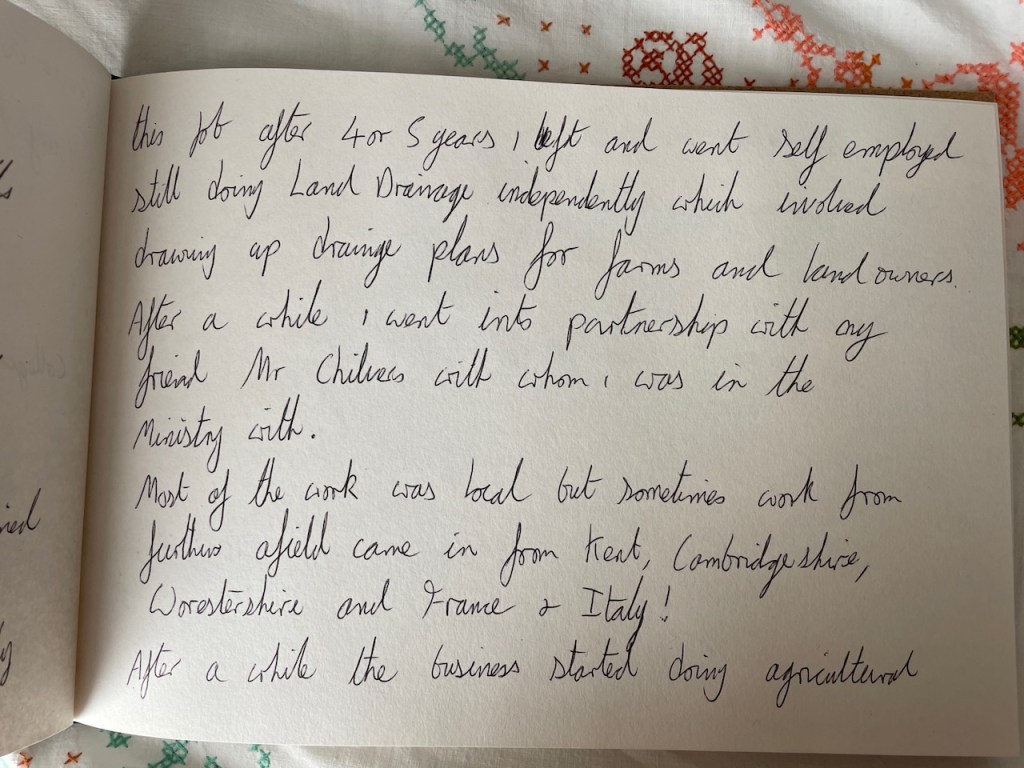 this job after 4 or 5 years I left and went self employed
still doing Land Drainage independently which involved
drawing up drainge plans for farms and land owners.
After a while I went into partnership with my
friend Mr Chilvers with whom I was in the
Ministry with.
Most of the work was local but sometimes work from
further afield came in from Kent, Cambridgeshire,
Worestershire and France & Italy!
After a while the business started doing agricultural